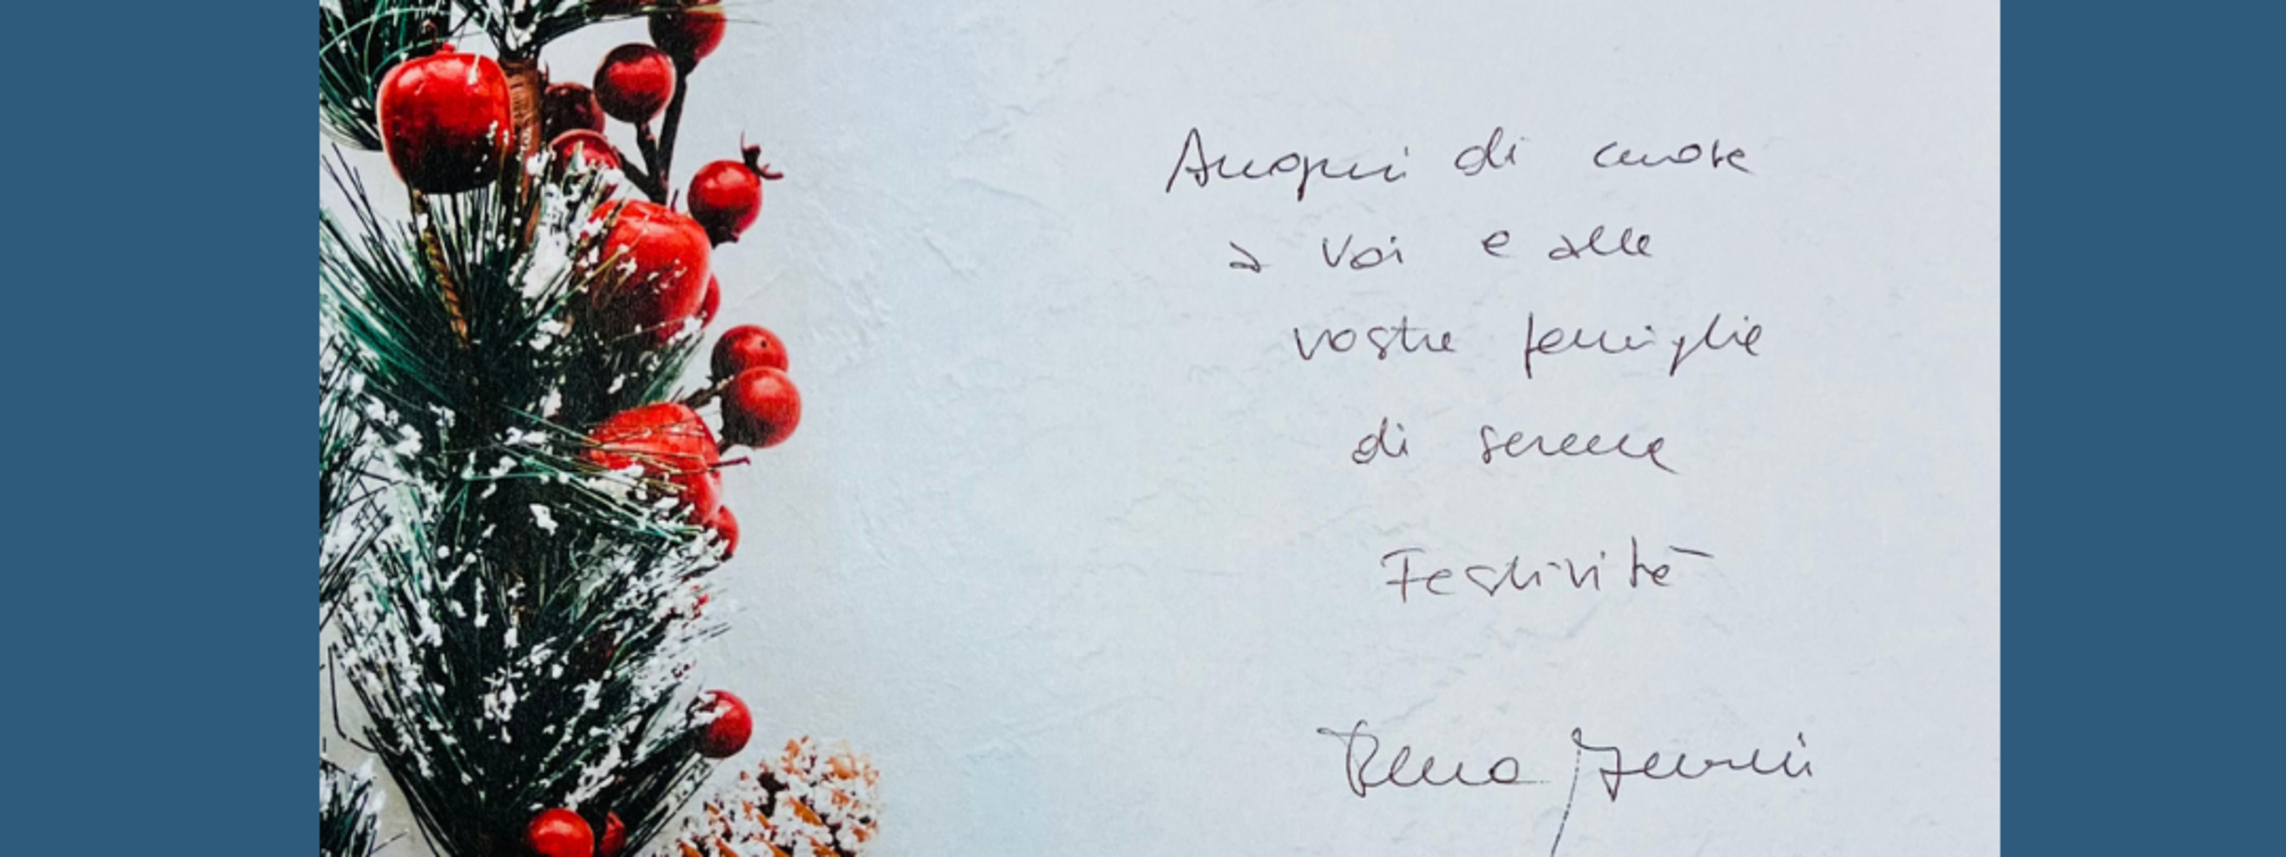 Auguri di cuore
a voi e alle
vostre famiglie
di serene
Festività